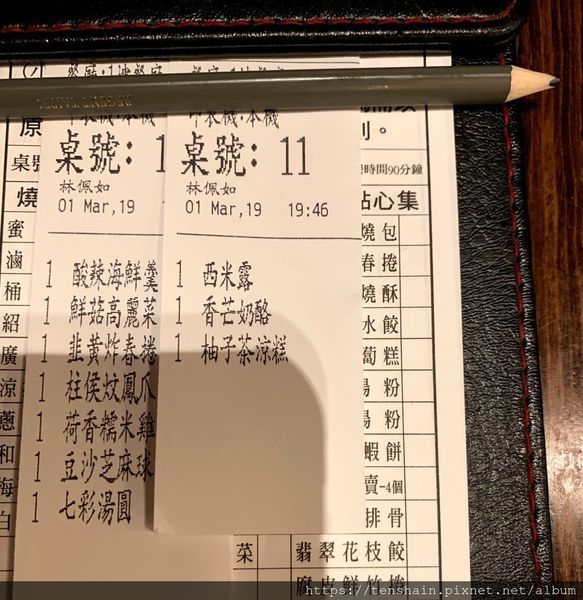 REGENT TAIPEI
印表機:本機
印表機:本機
桌號: 1
林佩如
01 Mar,19
1 酸辣海鮮羹
1 鮮菇高麗菜
1 韭黄炸春捲
1 柱侯炆鳳爪
1 荷香糯米雞
1 豆沙芝麻球
1 七彩湯圓
桌號: 11
林佩如
01 Mar,19 19:46
1 西米露
1 香芒奶酪
1 柚子茶涼糕
原
桌號
燒
蜜
滷
桶
紹
廣
涼
蔥
和
梅
白
時間90分鐘
點心集
燒包
春捲
燒酥
水餃
蔔糕
粉
粉
蝦餅
賣-4個
排骨
菜
翡翠花枝餃
腐皮鮮竹捲
https://tenshain.pixnet.net/album